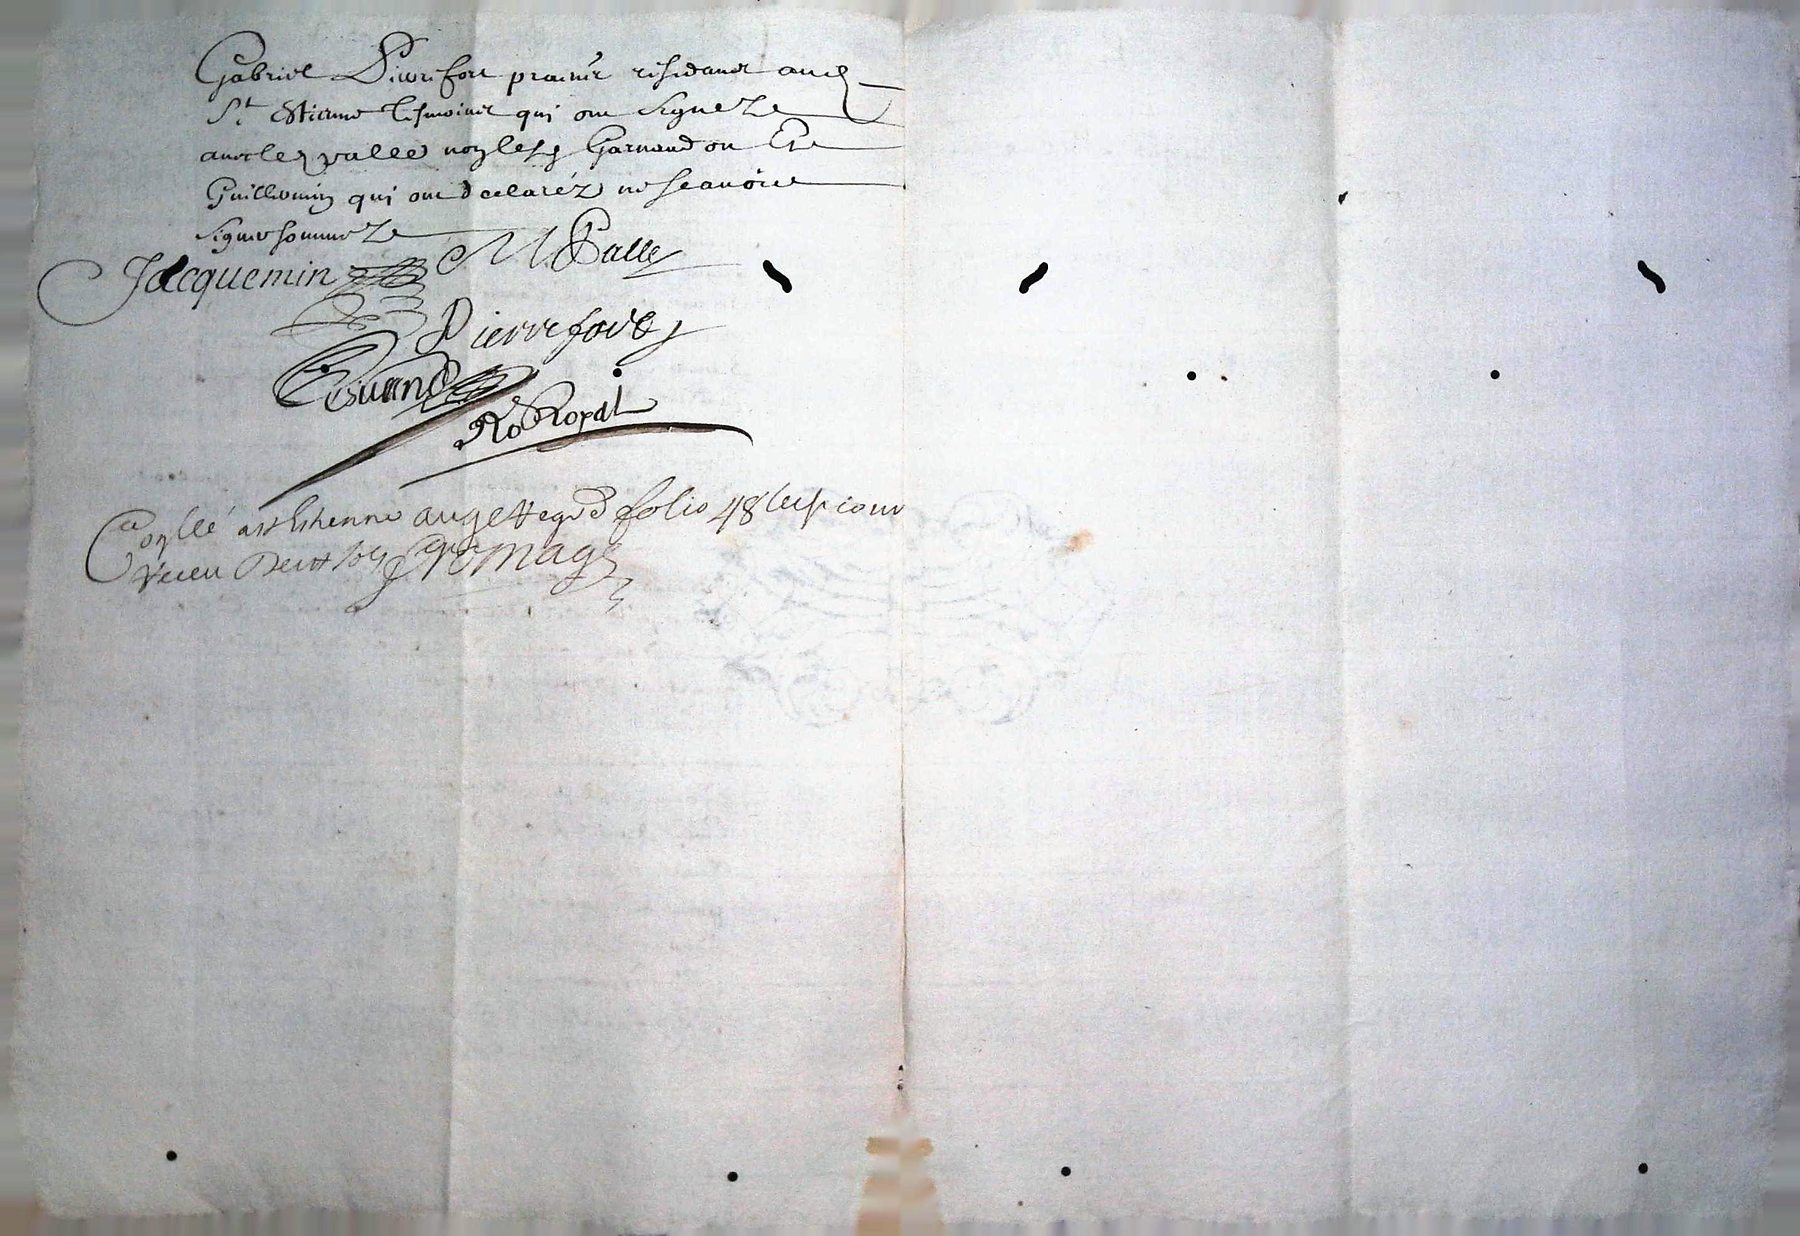 Gabriel Pierrefort praticien residant aud
St Estienne tesmoins qui ont signez
avec led Valled non lesd Garnaudon Et
Guillemin qui ont declaréz ne scavoir
signer sommez
Jacquemin M Valle
Pierrefort
Royal
Conllé a st Estienne au gettegrd folio 48
receu sols Fromage